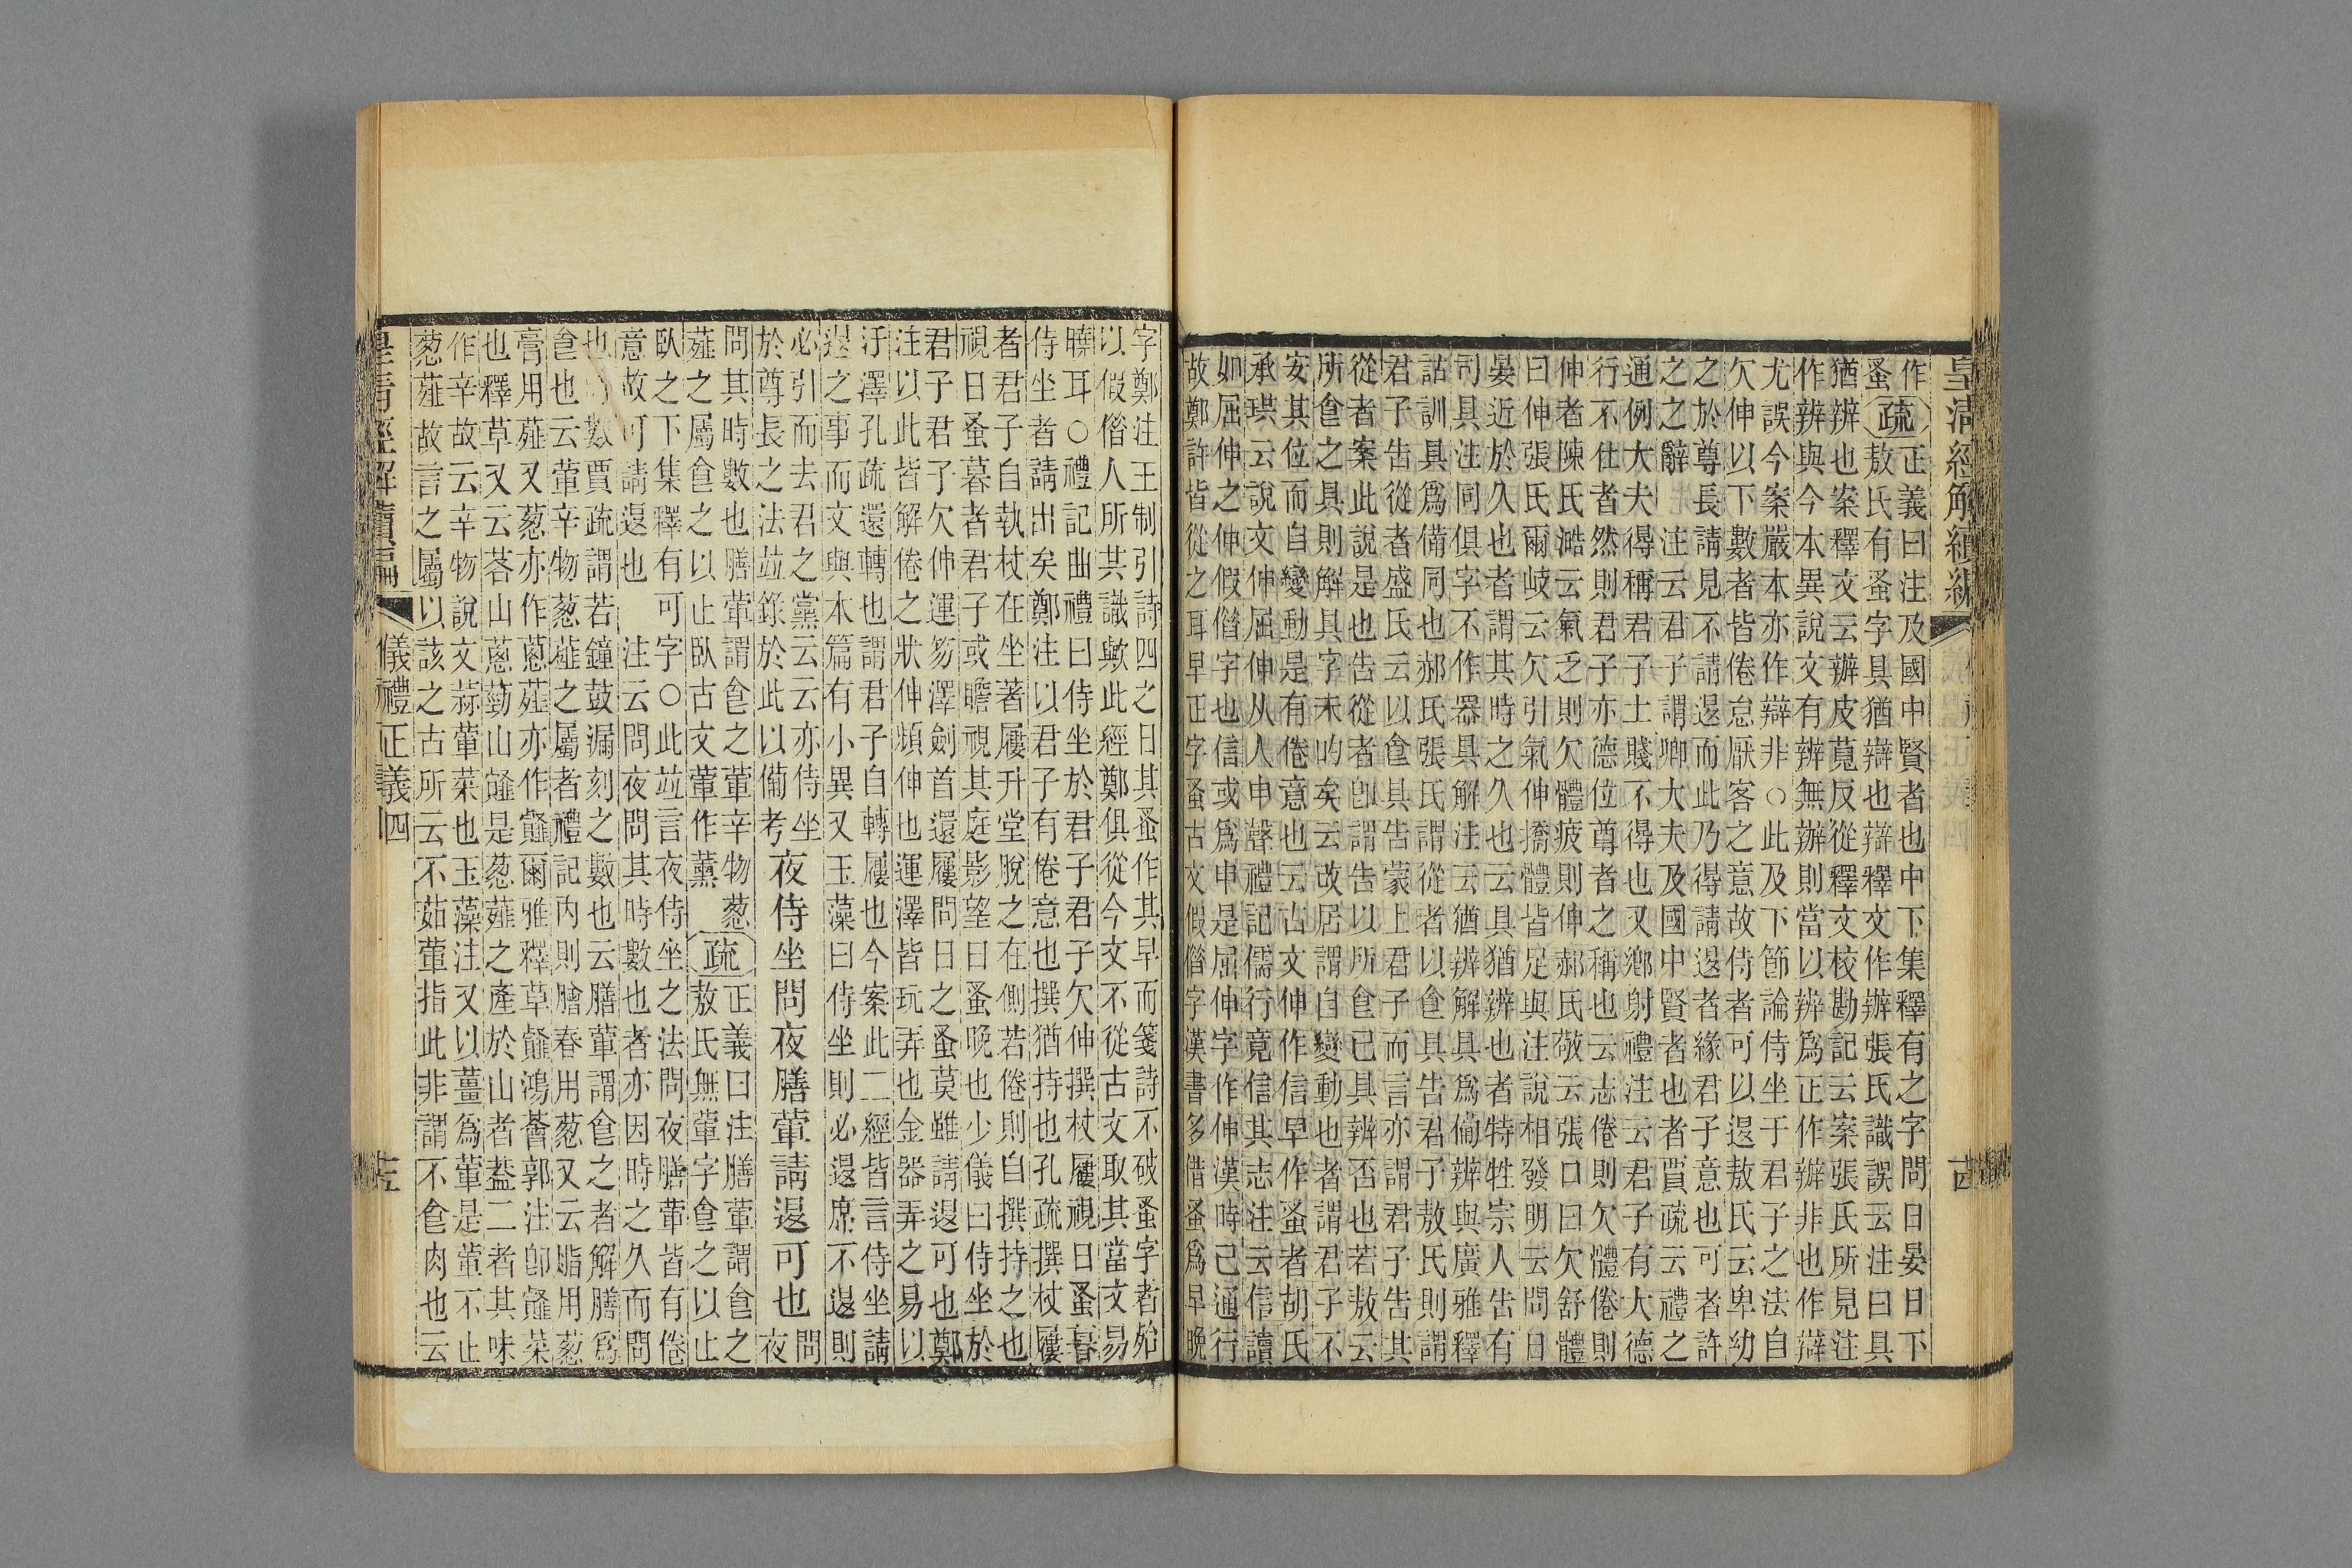 皇清經解續編
作正義曰注及國中賢者也中下集釋有之字問日晏日下
蚤疏敖氏有蚤字具猶辯也辯釋文作辦張氏識誤云注曰具
猶辨也案釋文云辦皮莧反從釋文校勘記云案張氏所見注
作辨與今本異說文有辨無辦則當以辨爲正作辦非也作辯
尤誤今案嚴本亦作辯非○此及下節論侍坐于君子之法自
欠伸以下數者皆倦怠厭客之意故侍者可以退敖氏云卑幼
之於尊長請見不請退而此乃得請退者緣君子意也可者許
之之辭 注云君子謂卿大夫及國中賢者也者賈疏云禮之
通例大夫得稱君子士賤不得也又鄉射禮注云君子有大德
行不仕者然則君子亦德位尊者之稱也云志倦則欠體倦則
伸者陳氏澔云氣乏則欠體疲則伸郝氏敬云張口曰欠舒體
曰伸張氏爾岐云欠引氣伸撟體皆足與注說相發明云問日
晏近於久也者謂其時之久也云具猶辨也者特牲宗人告有
司具注同俱字不作器具解注云猶辨解具爲備辨與廣雅釋
詁訓具爲備同也郝氏張氏謂從者以食具告君子敖氏則謂
君子告從者盛氏云以食具告蒙上君子而言亦謂君子告其
從者案此說是也告從者卽謂告以所食已具辨否也若敖云
所食之具則解具字未的矣云改居謂自變動也者謂君子不
安其位而自變動是有倦意也云古文伸作信早作蚤者胡氏
承珙云說文伸屈伸从人申聲禮記儒行竟信其志注云信讀
如屈伸之伸假借字也信或爲申是屈伸字作伸漢時已通行
故鄭許皆從之耳早正字蚤古文假借字漢書多借蚤爲早晚
字鄭注王制引詩四之日其蚤作其早而箋詩不破蚤字者始
以假借人所其識歟此經鄭俱從今文不從古文取其當文易
曉耳○禮記曲禮曰侍坐於君子君子欠伸撰杖屨視日蚤暮
侍坐者請出矣鄭注以君子有倦意也撰猶持也孔疏撰杖屨
者君子自執杖在坐著屨升堂脫之在側若倦則自撰持之也
視日蚤暮者君子或瞻視其庭影望日蚤晚也少儀曰侍坐於
君子君子欠伸運笏澤劍首還屨問日之蚤莫雖請退可也鄭
注以此皆解倦之狀伸頻伸也運澤皆玩弄也金器弄之易以
汙澤孔疏還轉也謂君子自轉屨也今案此二經皆言侍坐請
退之事而文與本篇有小異又玉藻曰侍坐則必退席不退則
必引而去君之黨云云亦侍坐
於尊長之法竝錄於此以備考
夜侍坐問夜膳葷請退可也
問夜
問其時數也膳葷謂食之葷辛物葱
薤之屬食之以止臥古文葷作薰
疏
正義曰注膳葷謂食之
敖氏無葷字食之以止
臥之下集釋有可字○此竝言夜侍坐之法問夜膳葷皆有倦
意故可請退也 注云問夜問其時數也者亦因時之久而問
也 數賈疏謂若鐘鼓漏刻之數也云膳葷謂食之者解膳爲
食也云葷辛物葱薤之屬者禮記內則膾春用葱又云脂用葱
膏用薤又葱亦作蔥薤亦作䪥爾雅釋草䪥鴻薈郭注卽䪥菜
也釋草又云茖山蔥葝山䪥是葱薤之產於山者葢二者其味
作辛故云辛物說文蒜葷菜也玉藻注又以薑爲葷是葷不止
葱薤故言之屬以該之古所云不茹葷指此非謂不食肉也云
皇清經解續編 儀禮正義四 十五